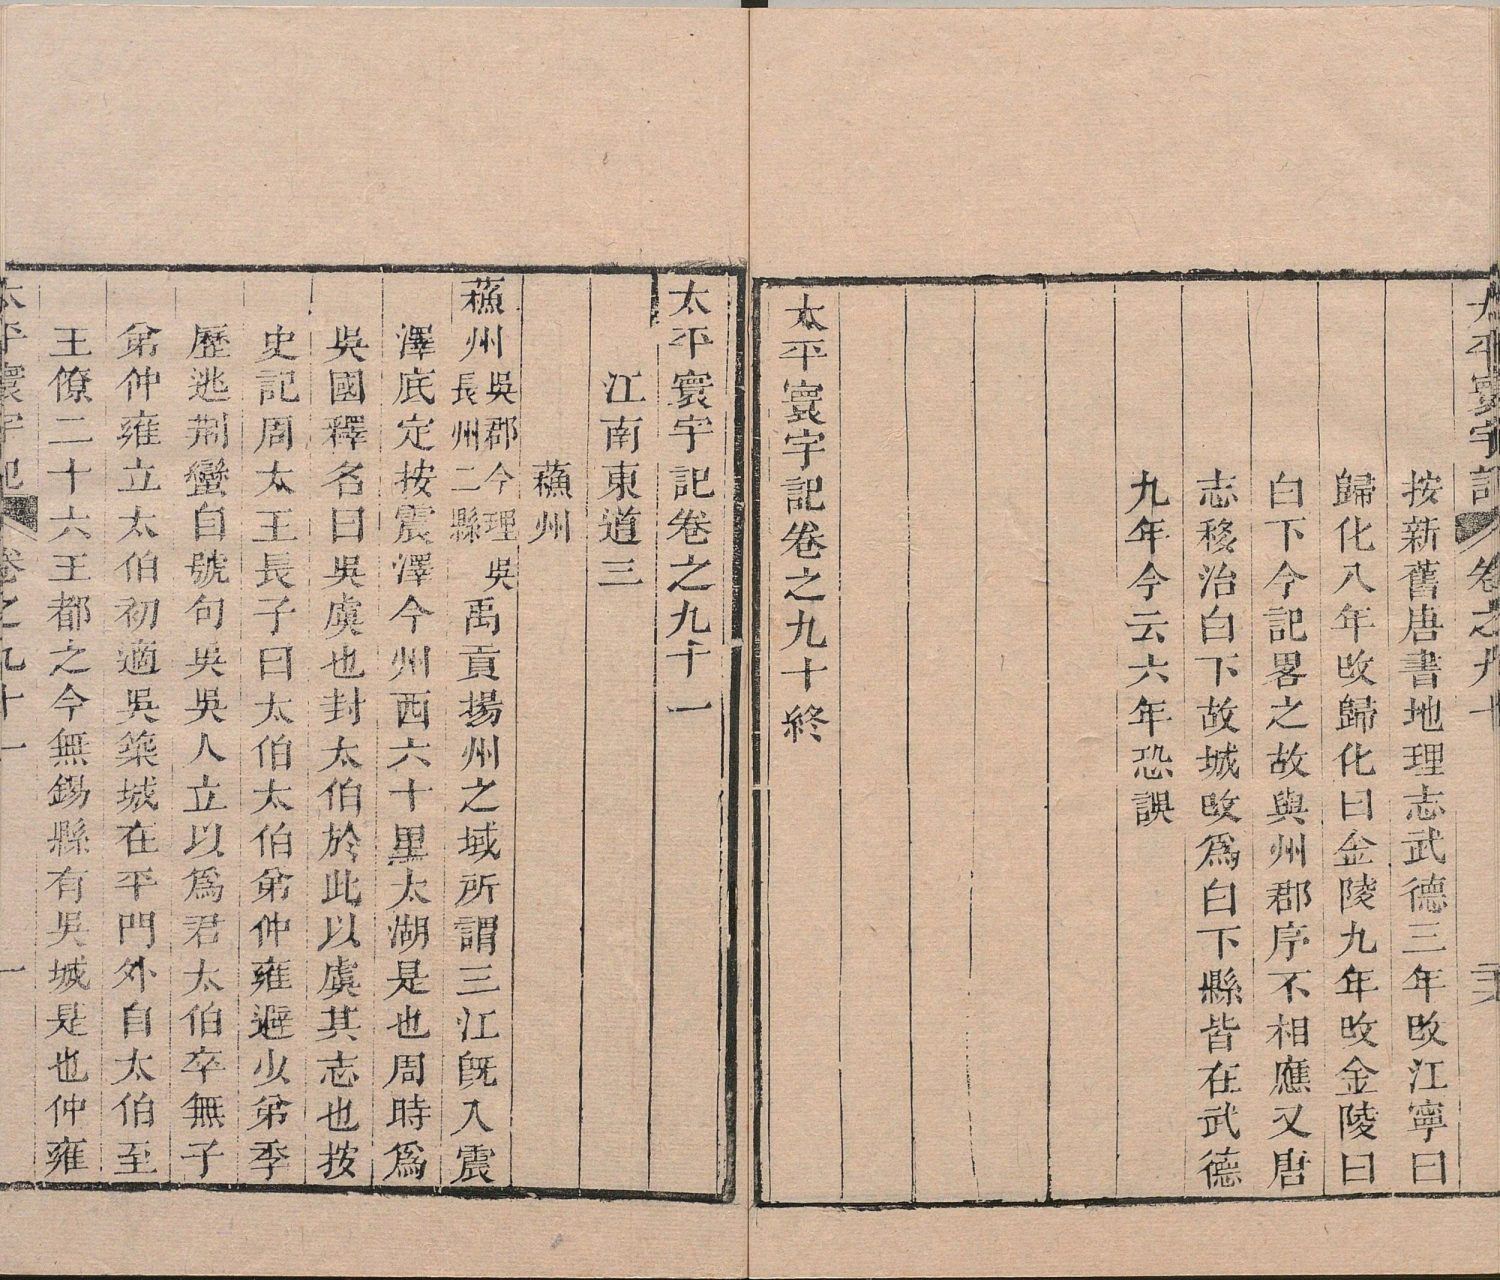 太平寰宇記 卷之九十 二十六
按新舊唐書地理志武德三年改江寧曰
歸化八年改歸化曰金陵九年改金陵曰
白下今記畧之故與州郡序不相應又唐
志移治白下故城改爲白下縣皆在武德
九年今云六年恐誤
太平寰宇記卷之九十終
太平寰宇記卷之九十一
江南東道三
蘓州
蘓州吳郡今理吳長州二縣禹貢揚州之域所謂三江旣入震
澤底定按震澤今州西六十里太湖是也周時爲
吳國釋名曰吳虞也封太伯於此以虞其志也按
史記周太王長子曰太伯太伯弟仲雍避少弟季
歷逃荆蠻自號句吳吳人立以爲君太伯卒無子
弟仲雍立太伯初適吳築城在平門外自太伯至
王僚二十六王都之今無錫縣有吳城是也仲雍
太平寰宇記 卷之九十一 一